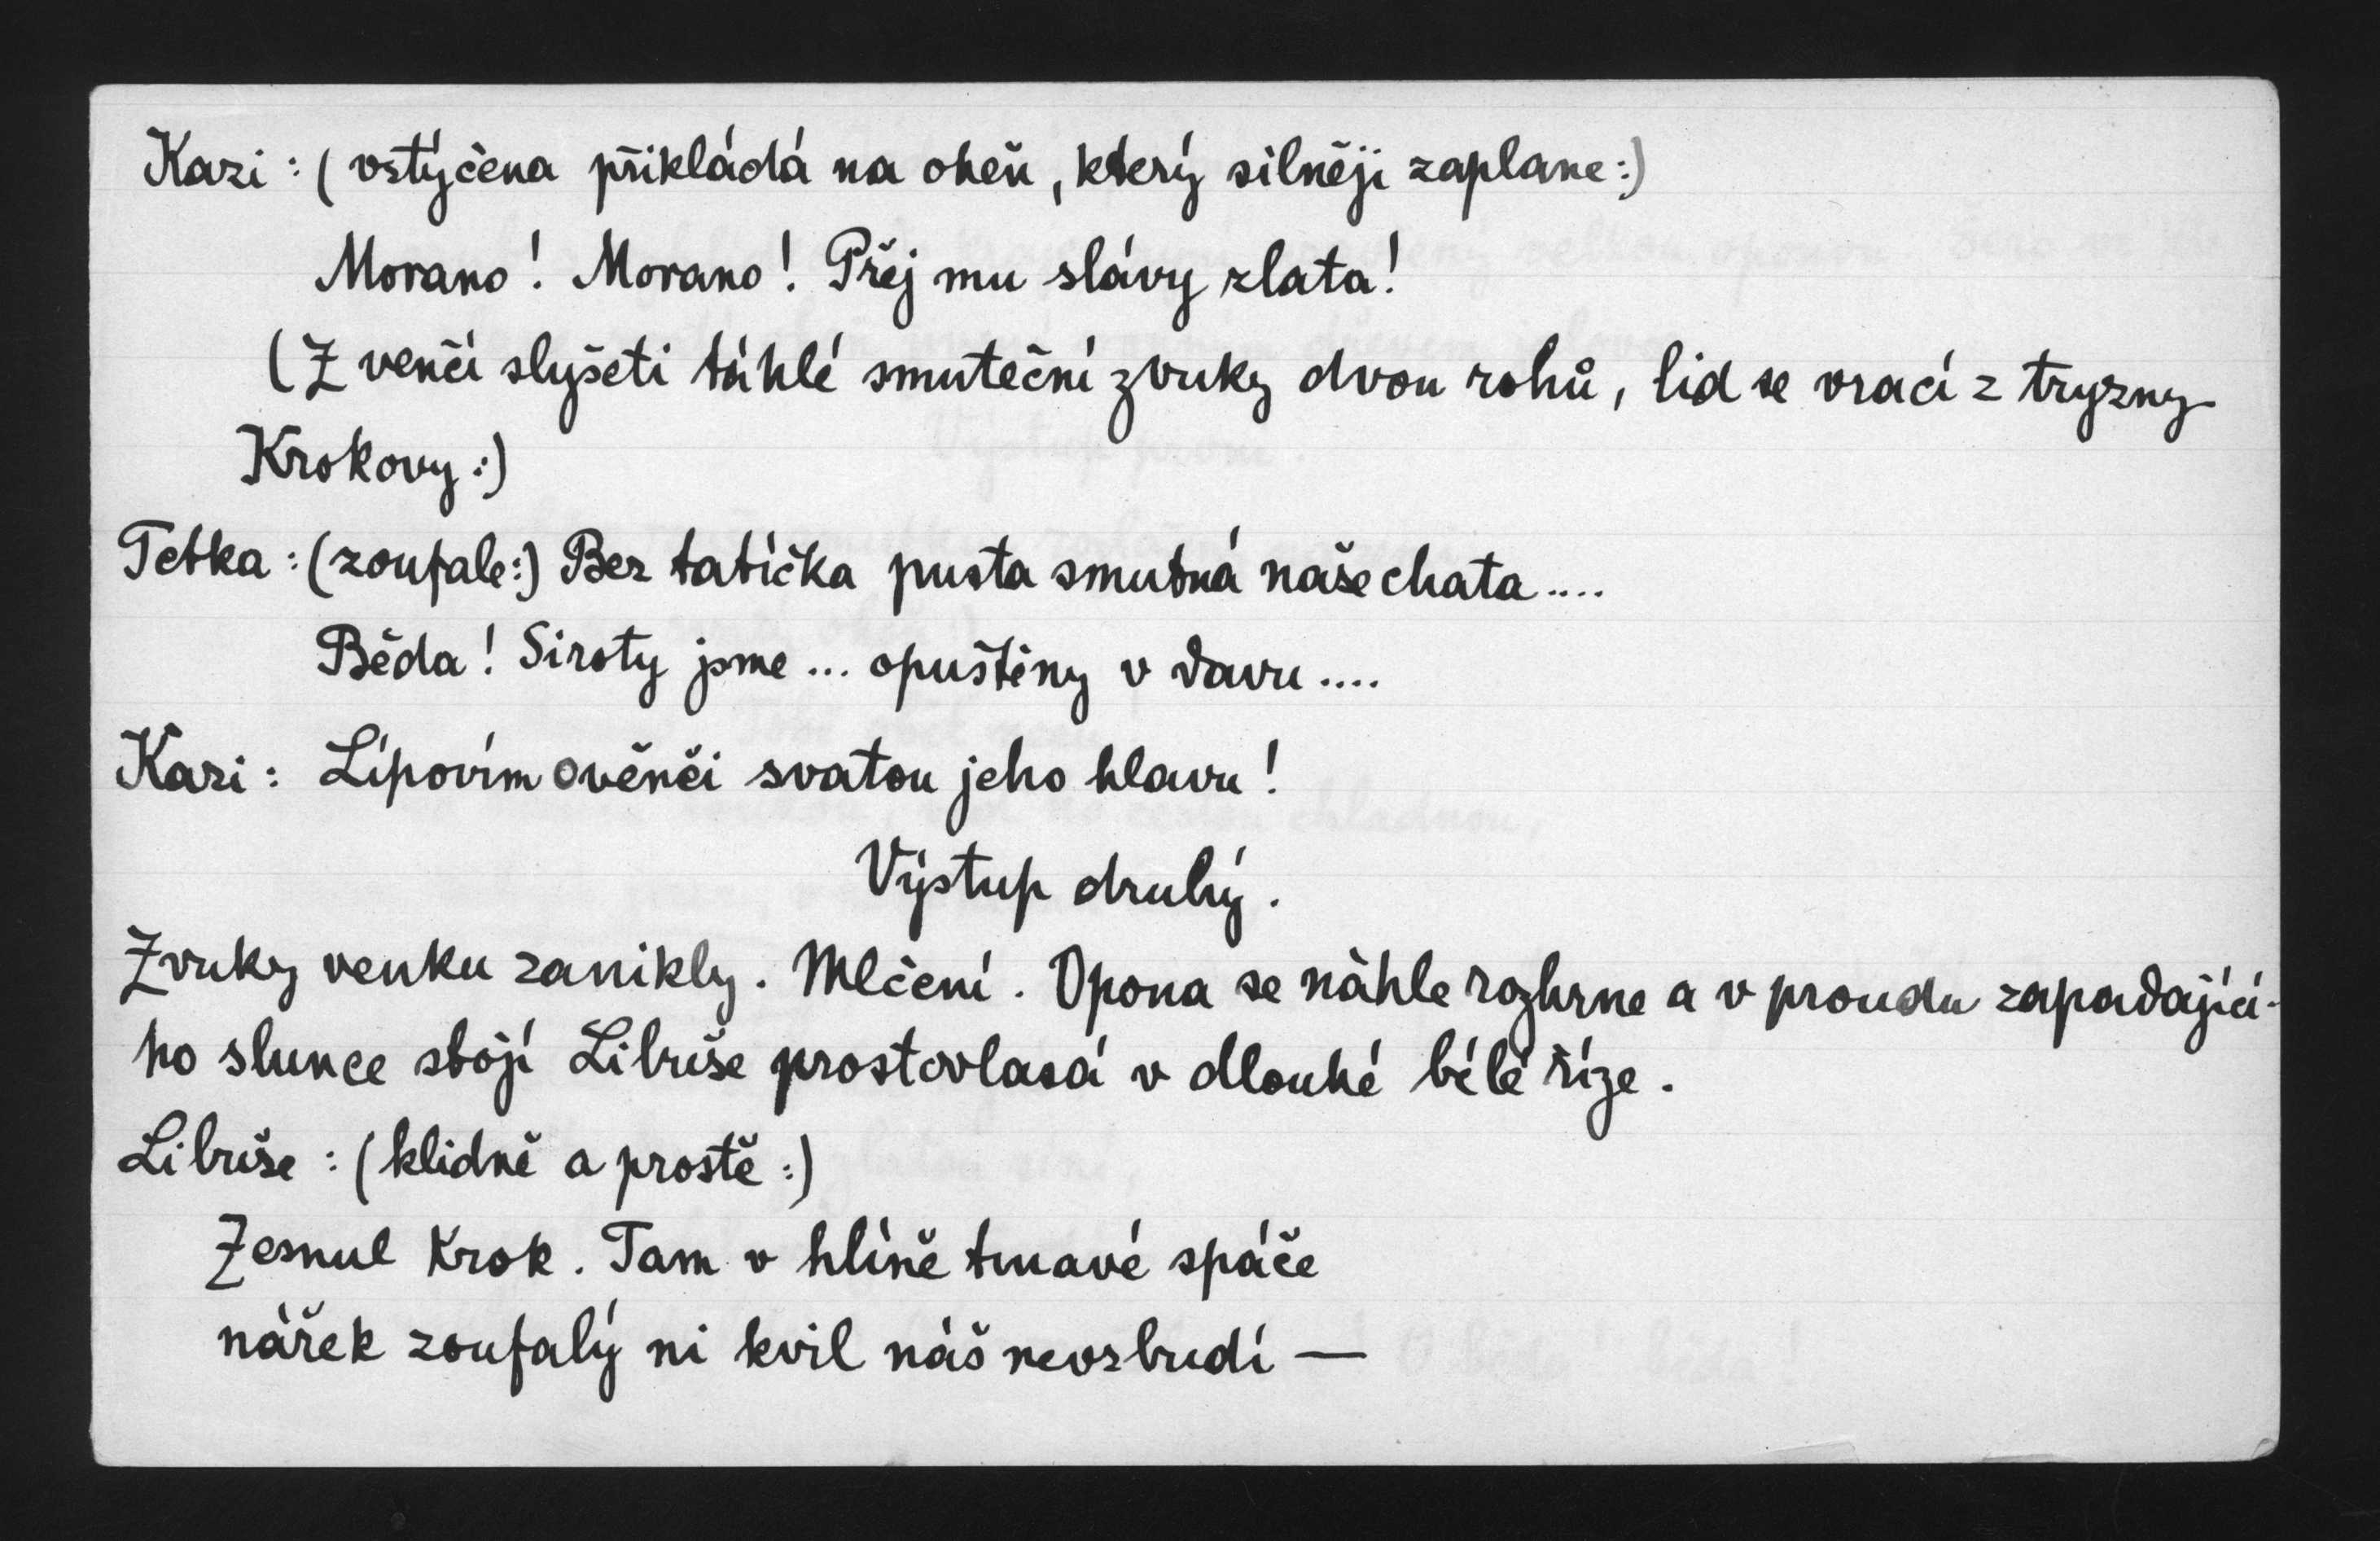 Kazi : ( vstýčena přikládá na oheň, který silněji zaplane :)
Morano ! Morano ! Přej mu slávy zlata !
( Z venčí slyšeti táhlé smuteční zvuky dvou rohů, lid se vrací z tryzny
Krokovy :)
Tetka : ( zoufale :) Bez tatíčka pusta smutná naše chata ....
Běda ! Siroty jsme ... opuštěny v davu ....
Kazi : Lípovím ověnči svatou jeho hlavu !
Výstup druhý .
Zvuky venku zanikly . Mlčení . Opona se náhle rozhrne a v proudu zapadající-
ho slunce stojí Libuše prostovlasá v dlouhé bílé říze .
Libuše : ( klidně a prostě :)
Zesnul Krok . Tam v hlíně tmavé spáče
nářek zoufalý ni kvil náš nevzbudí —